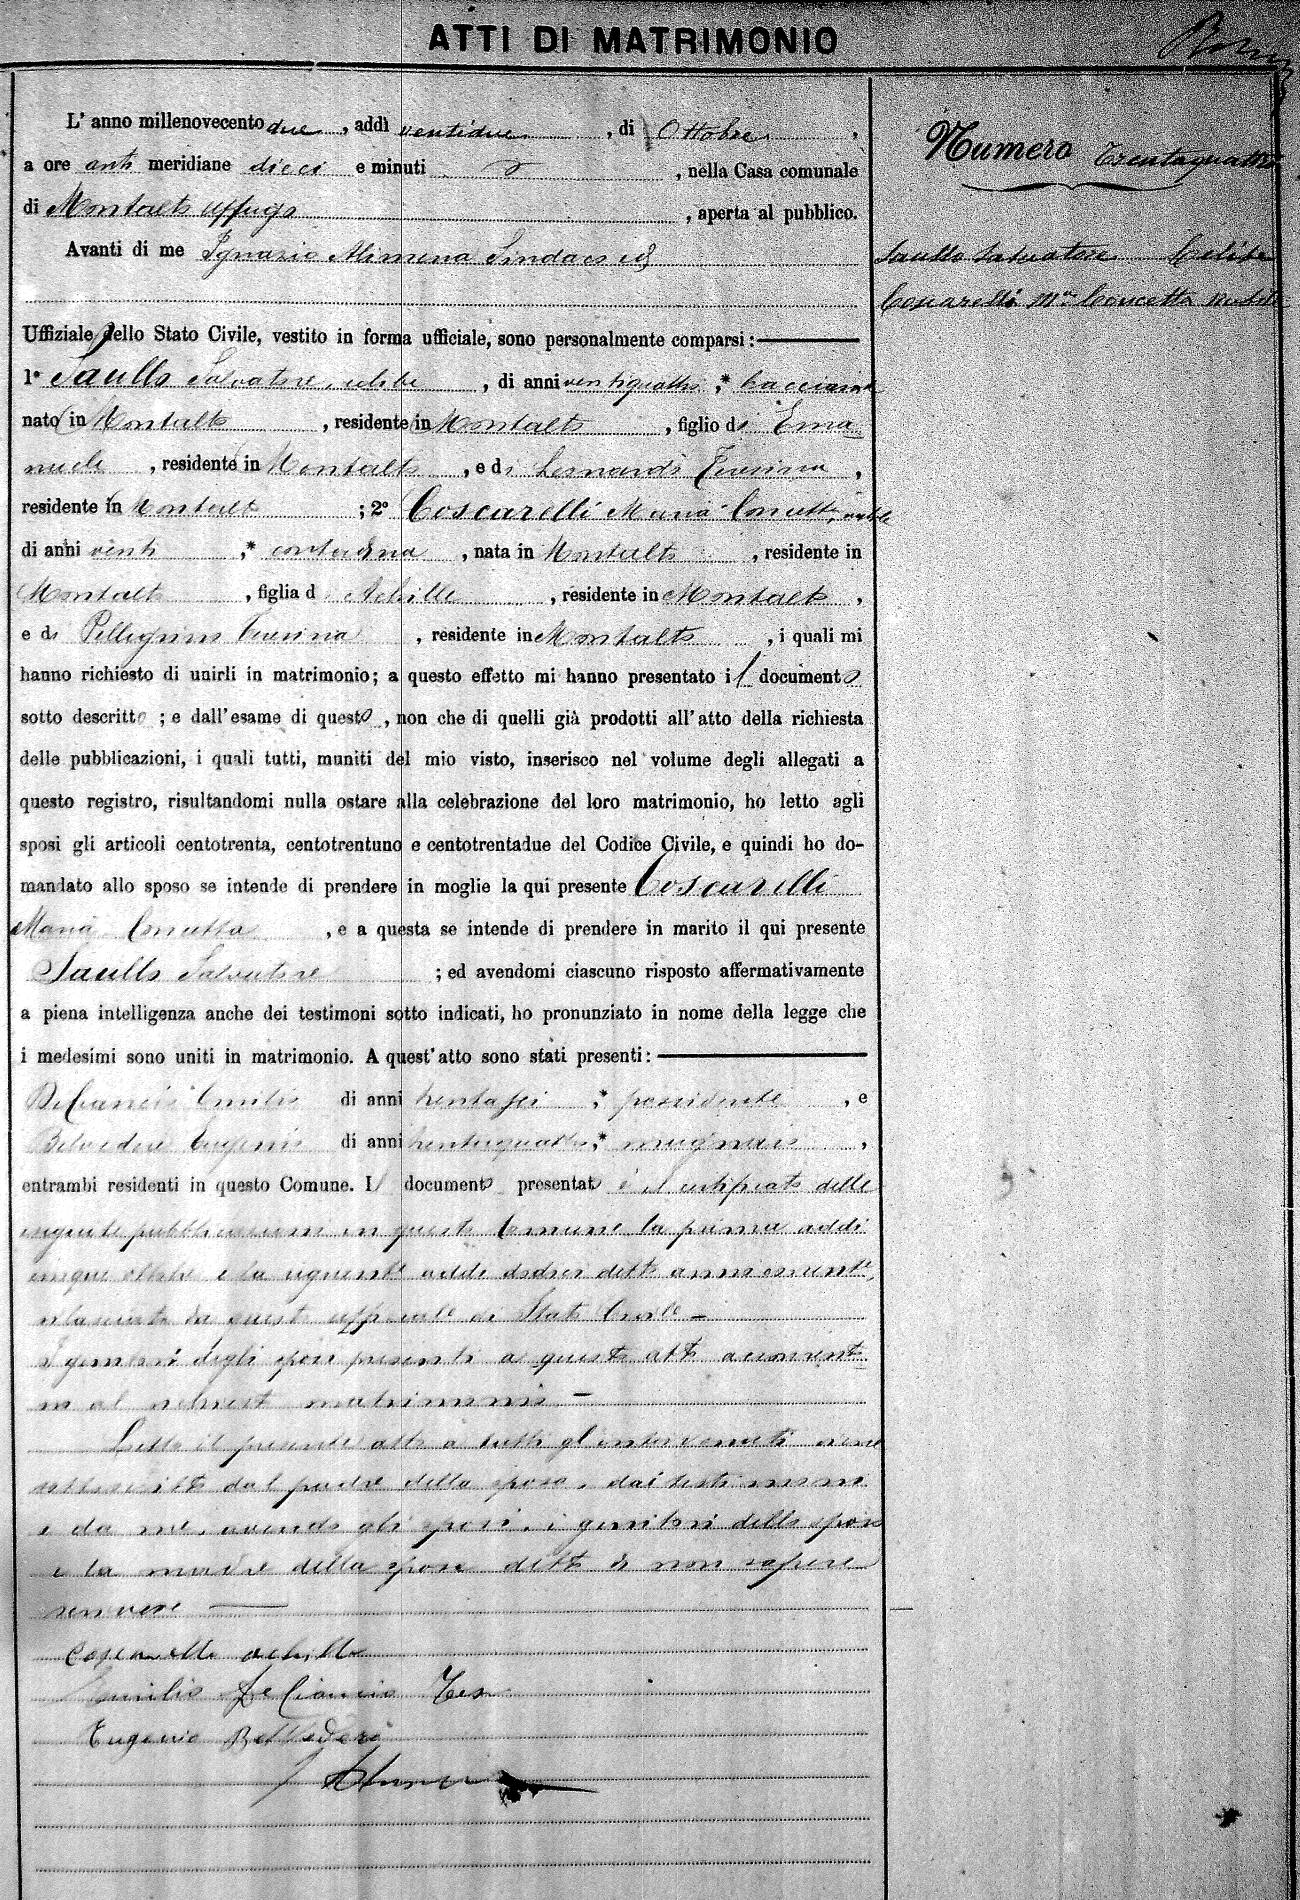 ATTI DI MATRIMONIO
L' anno millenovecento due, addì ventidue, di Ottobre,
a ore anti meridiane dieci e minuti , nella Casa comunale
di Montalto Uffugo, aperta al pubblico.
Avanti di me Ignazio Alimena Sindaco ed
Uffiziale dello Stato Civile, vestito in forma ufficiale, sono personalmente comparsi:
1° Saullo Salvatore, celibe, di anni ventiquattro, * bracciante
nato in Montalto, residente in Montalto, figlio di Ema
nuele, residente in Montalto, e di Teresina,
residente in Montalto; 2° Coscarelli Maria Concetta, nubile
di anni venti, * contadina, nata in Montalto, residente in
Montalto, figlia di Achille, residente in Montalto,
e di Pellegrino Teresina, residente in Montalto, i quali mi
hanno richiesto di unirli in matrimonio; a questo effetto mi hanno presentato il documento
sotto descritto; e dall'esame di questo, non che di quelli già prodotti all'atto della richiesta
delle pubblicazioni, i quali tutti, muniti del mio visto, inserisco nel volume degli allegati a
questo registro, risultandomi nulla ostare alla celebrazione del loro matrimonio, ho letto agli
sposi gli articoli centotrenta, centotrentuno e centotrentadue del Codice Civile, e quindi ho do-
mandato allo sposo se intende di prendere in moglie la qui presente Coscarelli
Maria Concetta, e a questa se intende di prendere in marito il qui presente
Saullo Salvatore; ed avendomi ciascuno risposto affermativamente
a piena intelligenza anche dei testimoni sotto indicati, ho pronunziato in nome della legge che
i medesimi sono uniti in matrimonio. A quest'atto sono stati presenti:
De Ciancio Emilio di anni trentasei, * possidente, e
Belvedere Eugenio di anni trentaquattro, * mugnaio,
entrambi residenti in questo Comune. Il documento presentato è il certificato delle
eseguite pubblicazioni in questo Comune la prima addi
cinque ottobre e la seguente addi dodici detto anno corrente,
rilasciato da questo uffiziale di Stato Civile –
I genitori degli sposi presenti a questo atto acconsento
no al richiesto matrimonio –
Letto il presente atto a tutti gl'intervenuti viene
sottoscritto dal padre della sposa, dai testimoni
e da me, avendo gli sposi, i genitori dello sposo
e la madre della sposa detto di non sapere
scrivere
Coscarelli Achille
Emilio De Ciancio Tes
Eugenio Belvedere
Numero Trentaquattro
Saullo Salvatore Celibe
Coscarelli Mª Concetta nubile